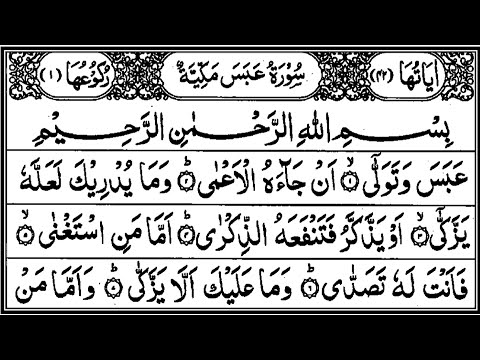 اٰيَاتُهَا (٤٢) سُوْرَةُ عَبَسَ مَكِّيَّةٌ رُكُوْعُهَا (١)
بِسْمِ اللّٰهِ الرَّحْمٰنِ الرَّحِيْمِ
عَبَسَ وَتَوَلّٰىۤ ۙ﴿١﴾ اَنْ جَآءَهُ الْاَعْمٰى ؕ﴿٢﴾ وَمَا يُدْرِيْكَ لَعَلَّهٗ
يَزَّكّٰىۤ ۙ﴿٣﴾ اَوْ يَذَّكَّرُ فَتَنْفَعَهُ الذِّكْرٰى ؕ﴿٤﴾ اَمَّا مَنِ اسْتَغْنٰى ۙ﴿٥﴾
فَاَنْتَ لَهٗ تَصَدّٰى ؕ﴿٦﴾ وَمَا عَلَيْكَ اَلَّا يَزَّكّٰى ؕ﴿٧﴾ وَاَمَّا مَنْ